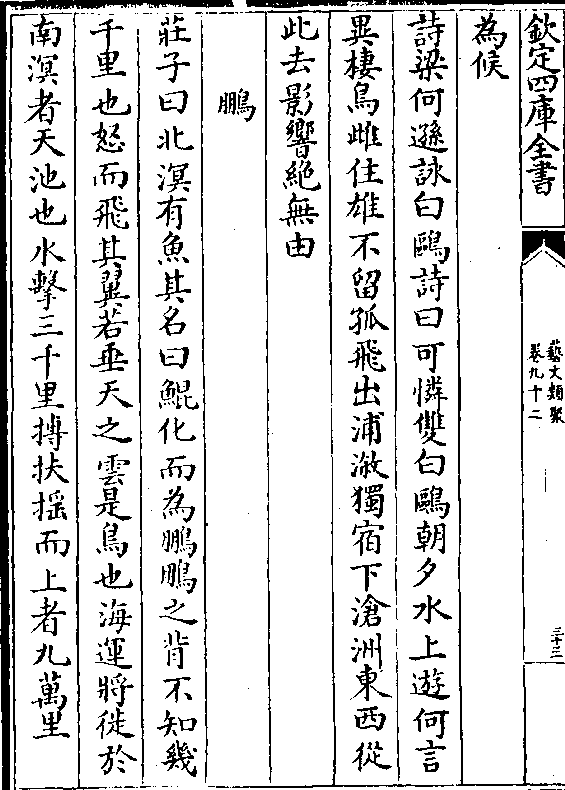 欽定四庫全書
藝文類聚
卷九十二
三十三
為候
詩梁何遜詠白鷗詩曰可憐雙白鷗朝夕水上遊何言
異棲鳥雌住雄不留孤飛出浦溆獨宿下滄洲東西從
此去影響絶無由
鵬
莊子曰北溟有魚其名曰鯤化而為鵬鵬之背不知幾
千里也怒而飛其翼若垂天之雲是鳥也海運將徙於
南溟者天池也水擊三千里摶扶揺而上者九萬里